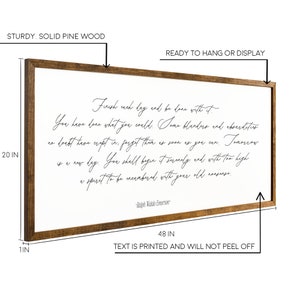 STURDY SOLID PINE WOOD
READY TO HANG OR DISPLAY
Finish each day and be done with it.
You have done what you could. Some blunders and absurdities
no doubt have crept in, forget them as soon as you can. Tomorrow
is a new day. You shall begin it serenely and with too high
a spirit to be encumbered with your old nonsense.
-Ralph Waldo Emerson-
20 IN
48 IN
1 IN
TEXT IS PRINTED AND WILL NOT PEEL OFF